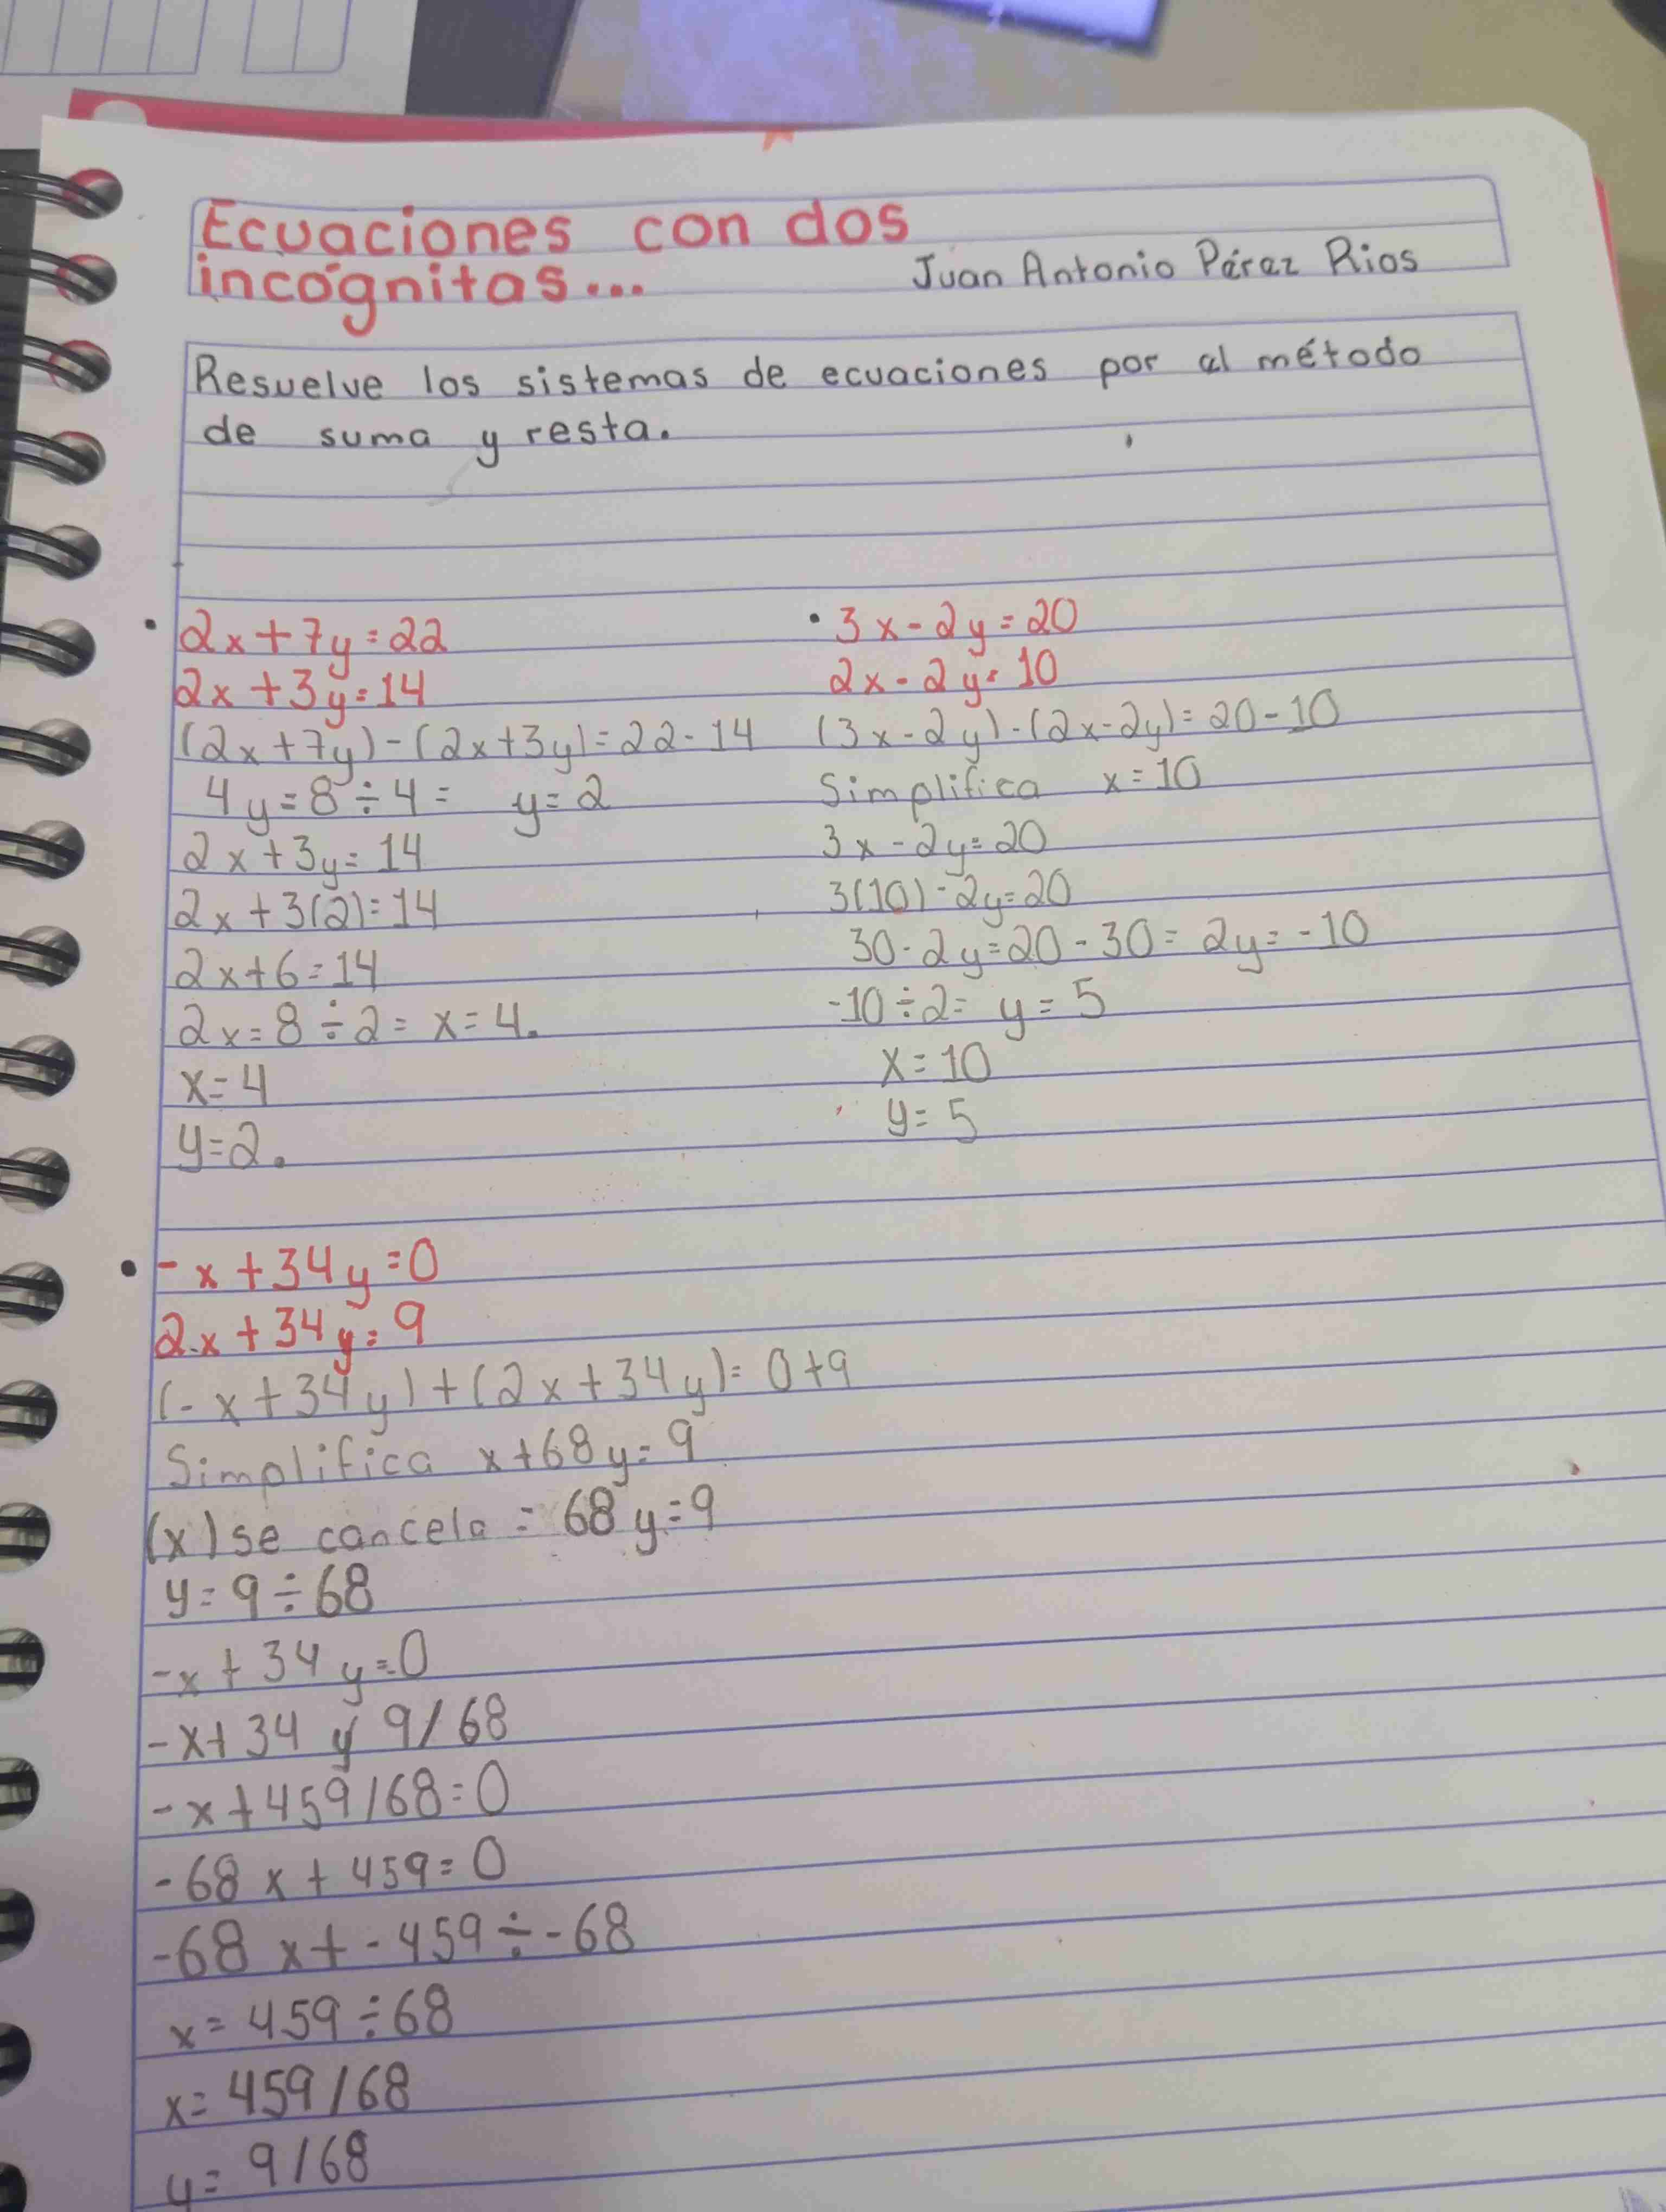 Ecuaciones con dos
incógnitas...
Juan Antonio Pérez Rios
Resuelve los sistemas de ecuaciones por el método
de suma y resta.
• 2x+7y=22
2x+3y=14
(2x+7y)-(2x+3y)=22-14
4y=8÷4= y=2
2x+3y=14
2x+3(2)=14
2x+6=14
2x=8÷2= x=4.
x=4
y=2.
• 3x-2y=20
2x-2y=10
(3x-2y)-(2x-2y)=20-10
Simplifica x=10
3x-2y=20
3(10)-2y=20
30-2y=20-30= 2y=-10
-10÷2= y=5
x=10
y=5
• -x+34y=0
2x+34y=9
(-x+34y)+(2x+34y)=0+9
Simplifica x+68y=9
(x) se cancela = 68y=9
y=9÷68
-x+34y=0
-x+34y 9/68
-x+459/68=0
-68x+459=0
-68x+-459÷-68
x=459÷68
x=459/68
y=9/68